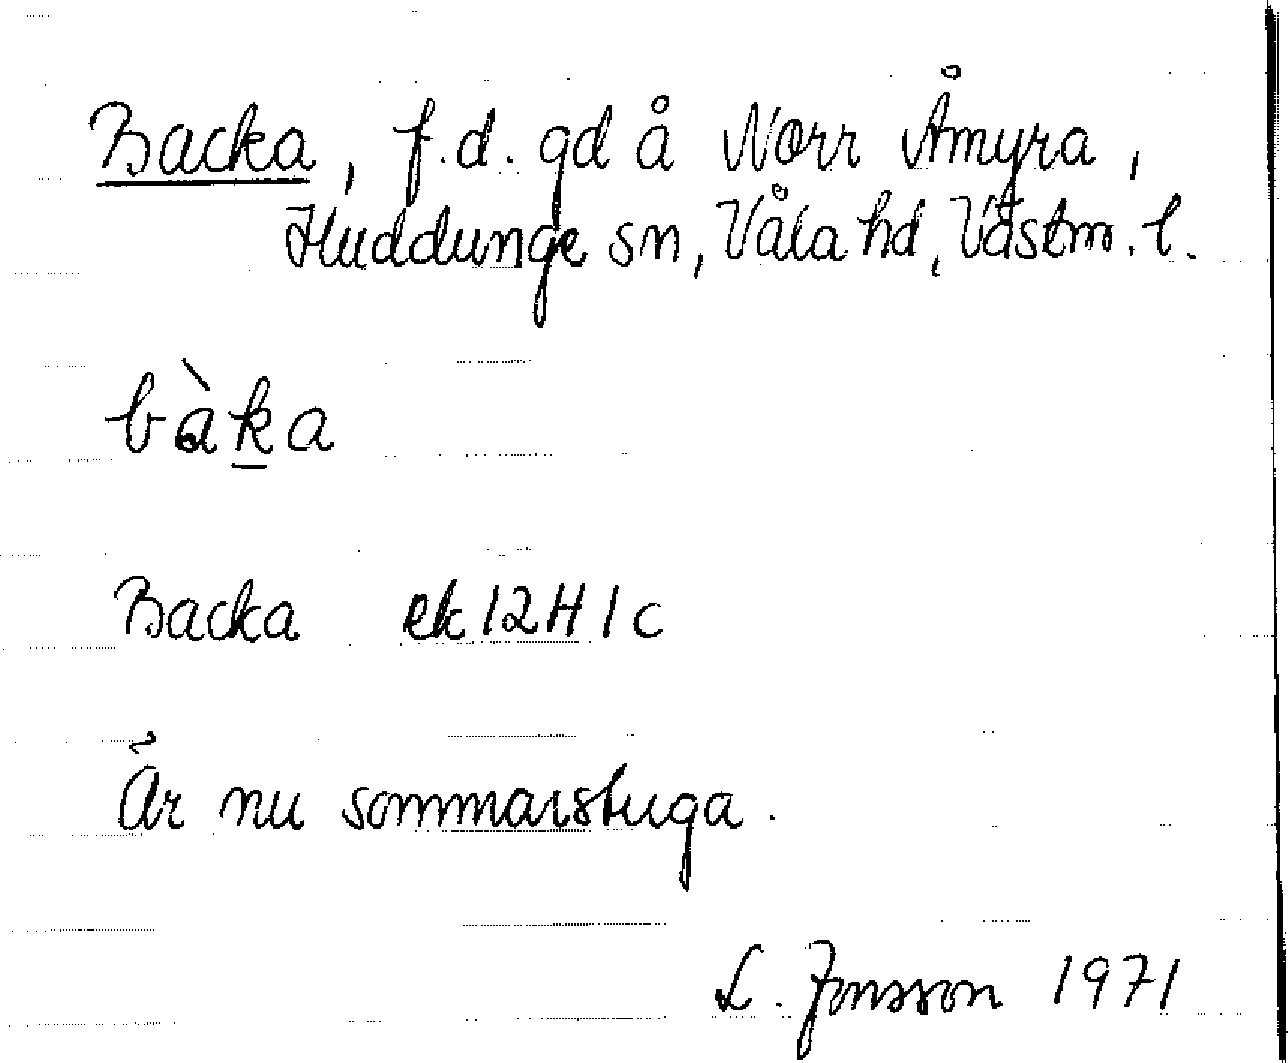 Backa, f.d. gd å Norr Åmyra,
Huddunge sn, Våla hd, Västm. l.
bàka
Backa ek 12H 1c
Är nu sommarstuga.
L. Jonsson 1971